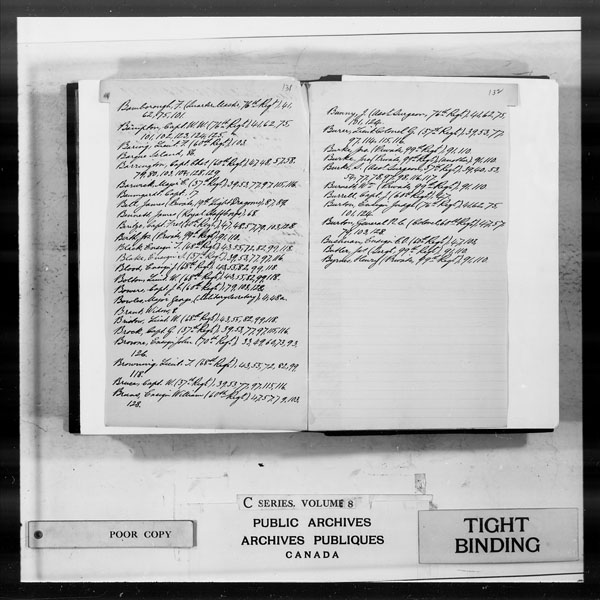 131
Bamborough, T. (Quarter Master, 76th Regt), 41,
62, 75, 101.
Bampton, Capt. W. W. (76th Regt), 41, 62, 75
101, 102, 123, 124, 125.
Baring, Lieut. F. (60th Regt), 103.
Barrington, Capt. (60th Regt), 47, 48, 57, 58
79, 80, 103, 104, 128, 129.
Barwick, Major R. (37th Regt), 39, 53, 77, 97, 115, 116.
Baumgardt, Capt. 17
Bell, James (Private, 19th Light Dragoons), 87, 88.
Bennett, James (Royal Staff Corps), 68
Black, Ensign T. (68th Regt), 43, 55, 72, 82, 99, 118.
Blake, Ensign (37th Regt), 39, 53, 77, 97, 116
Blood, Ensign J. (68th Regt), 43, 55, 82, 99, 118.
Bolton, Lieut. W. (68th Regt), 43, 55, 82, 99, 118.
Bower, Capt. J. S. (60th Regt), 79, 103, 128.
Bowles, Major George, (Military Secretary), 4, 48a.
Brand, Widow, 8
Bristow, Lieut. W. (68th Regt), 43, 55, 82, 99, 118.
Brook, Capt. G. (37th Regt), 39, 53, 77, 97, 115, 116.
Browne, Ensign John (70th Regt), 33, 49, 60, 73, 93
126.
Browning, Lieut. T. (68th Regt), 43, 55, 72, 82, 99
118.
Bruce, Capt. W. (37th Regt), 39, 53, 77, 97, 115, 116
Ensign William (60th Regt), 47, 57, 79, 103
128.
132
Bunny, J. (Asst. Surgeon, 76th Regt), 41, 62, 75
101, 124.
Burer, Lieut Colonel G. (37th Regt), 39, 53, 77
97, 114, 115, 116.
Burke, Jno. (Private 99th Regt), 91, 110.
Burke, Jno. (Private, 99th Regt) (another), 91, 110.
Burke, S. (Asst. Surgeon, 37th Regt), 39, 40, 53
54, 77, 78, 97, 98, 116, 117.
Burnett, Wm. (Private, 99th Regt), 91, 110.
Burrell, Capt. J. (60th Regt), 47.
Burton, Ensign Judge (76th Regt), 41, 62, 75
101, 124.
Burton, General N. C. (Colonel 60th Regt), 47, 57
79, 103, 128
Bushman, Ensign (60th Regt), 47, 103.
Butler, (Sergt. 99th Regt), 91, 110
Byrne, Henry (Private, 99th Regt), 91, 110.
POOR COPY
C SERIES. VOLUME 8
PUBLIC ARCHIVES
ARCHIVES PUBLIQUES
CANADA
TIGHT
BINDING